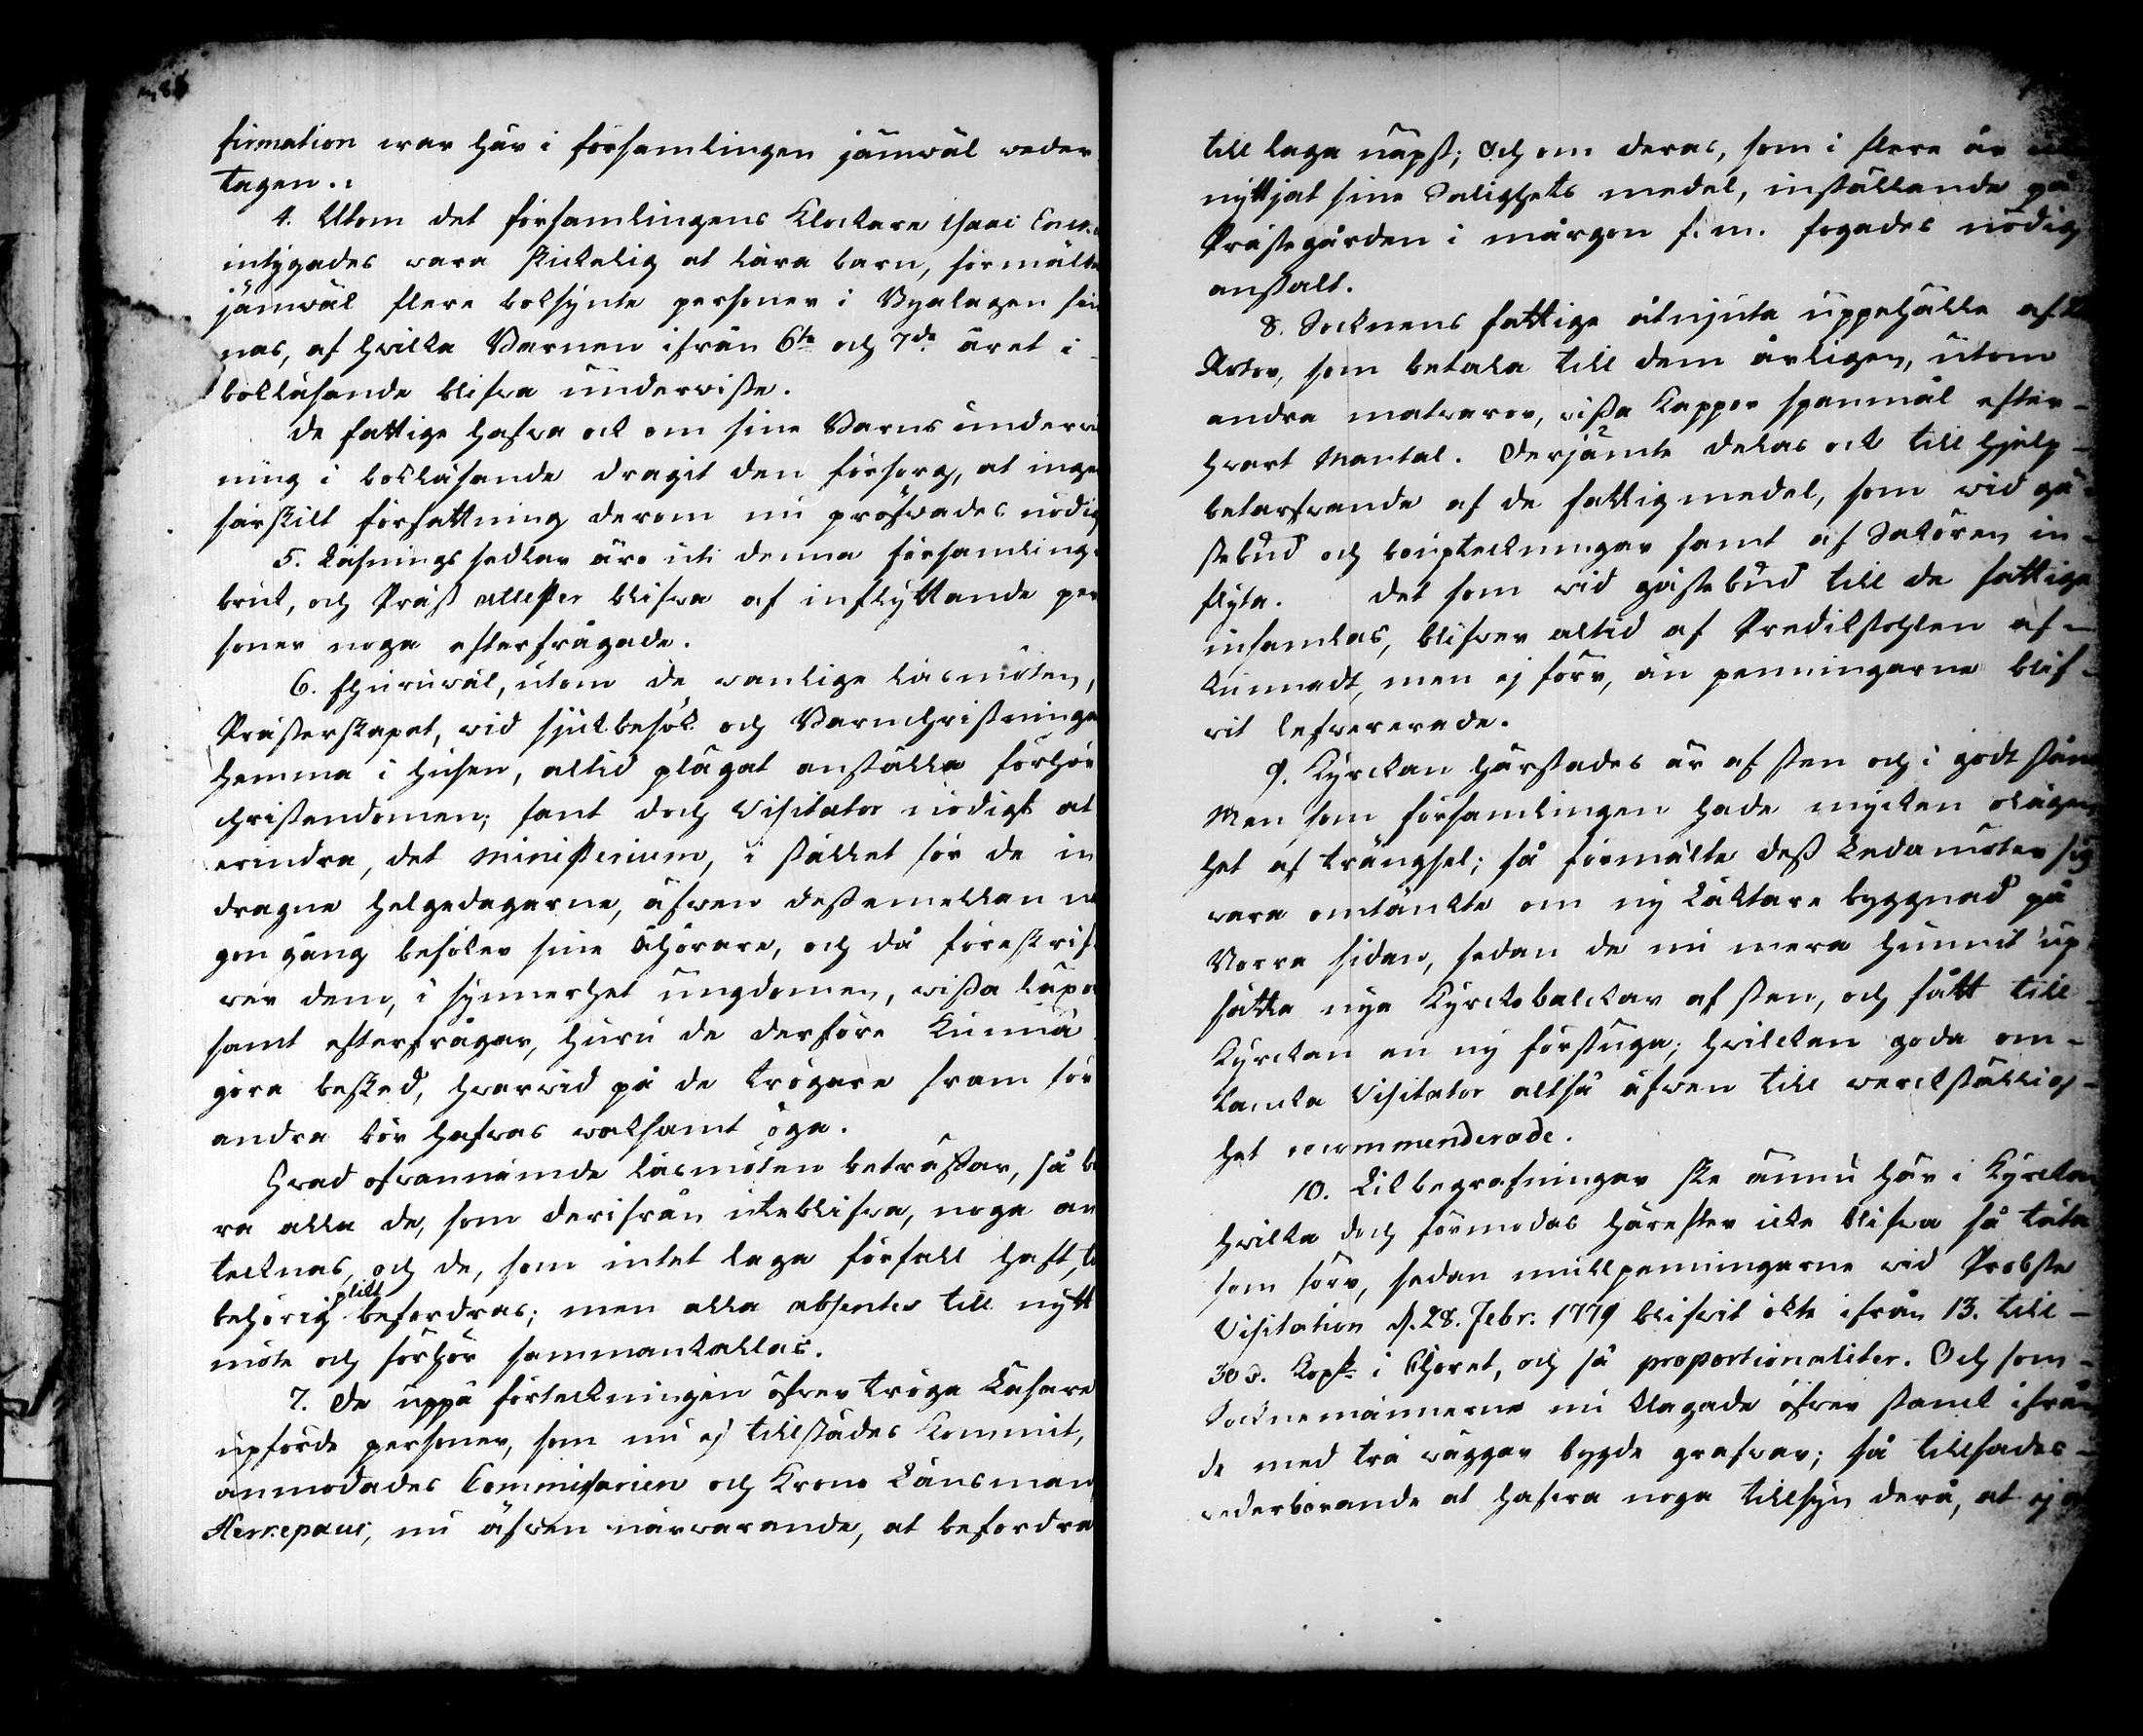 firmation war här i församlingen jämwäl weder
tagen.
4. Utom det församlingens Klockare Isaac
intygades wara skickelig at lära barn, förmälte
jämwäl flere boksynte personer i Byalagen fin
nas, af hwilka Barnen ifrån 6te och 7de året i
bokläsande blifwa underwiste.
De fattige hafwa ock om sine Barns underwi
ning i bokläsande dragit den försorg, at ingen
särskilt författning derom nu pröfwades nödig
5. Läsnings sedlar äro uti denna församling
bruk, och Präst attester blifwa af inflyttande per
soner noga efterfrågade.
6. Ehuruwäl, utom de wanlige läsmöten,
Prästerskapet, wid sjukbesök och Barnchristningar
hemma i husen, altid plägat anställa förhör
christendomen; fant doch Visitator nödigt at
erindra, det Ministerium, i stället för de in
dragne helgedagarne, äfwen dessemellan nå
gon gång besöker sine åhörare, och då föreskrif
wer dem, i synnerhet ungdomen, wissa läxor
samt efterfrågar, huru de derföre kunna
göra besked, hwarwid på de trögare fram för
andra bör hafwas waksamt öga.
Hwad ofwannämde läsmöten beträffar, så bö
ra alla de, som derifrån uteblifwa, noga an
tecknas, och de, som intet laga förfall haft, til
behörig plikt befordras; men alla absenter till nytt
möte och förhör sammankallas.
7. De uppå förteckningen öfwer tröga Läsare
upförde personer, som nu ej tillstädes kommit,
anmodades Commissarien och Krono Länsman
Herrepaur, nu äfwen närwarande, at befordra
till laga näpst; Och om deras, som i flere år
nyttjat sine Salighets medel, inställande på
Prästegården i mårgon f.m. fogades nödig
anstalt.
8. Socknens fattige åtnjuta uppehälle af
Rotor, som betala till dem årligen, utom
andra matwaror, wissa Kappor spanmål efter
hwart Mantal. Derjämte delas ock till hjelp-
betarfwande af de fattigmedel, som wid gä-
stebud och bouptekningar samt af Saköre, in-
flyta. Det som wid gästebud till de fattiga
insamlas, blifwer altid af Predikstohlen af-
kunnadt, men ej förr, än penningarne blif-
wit lefwererade.
9. Kyrckan härstädes är af sten och i godt stån
Men som församlingen hade mycken olägen
het af trängsel; så förmälte dess Ledamöter sig
wara omtänkte om ny Läktare byggnad på
Norra sidan, sedan de nu mera hunnit up-
sätta nye Kyrckobalckar af sten, och fått till
Kyrckan en ny förstuga; hwilcken goda om-
tancka Visitator altså äfwen till werckställig-
het recommenderade.
10. Likbegrafningar ske ännu här i Kyrckan
hwilka doch förmodas härefter icke blifwa så täta
som förr, sedan mullpenningarne wid Probste
Visitation d. 28. Febr. 1779 blifwit ökte ifrån 13. till
30 d. Kopp:r i Choret, och så proportionaliter. Och som
Socknemännerne nu klagade öfwer stanck ifrån
de med trä wäggar bygde grafwar; så tillsades
wederbörande at hafwa noga tillsyn derå, at ej